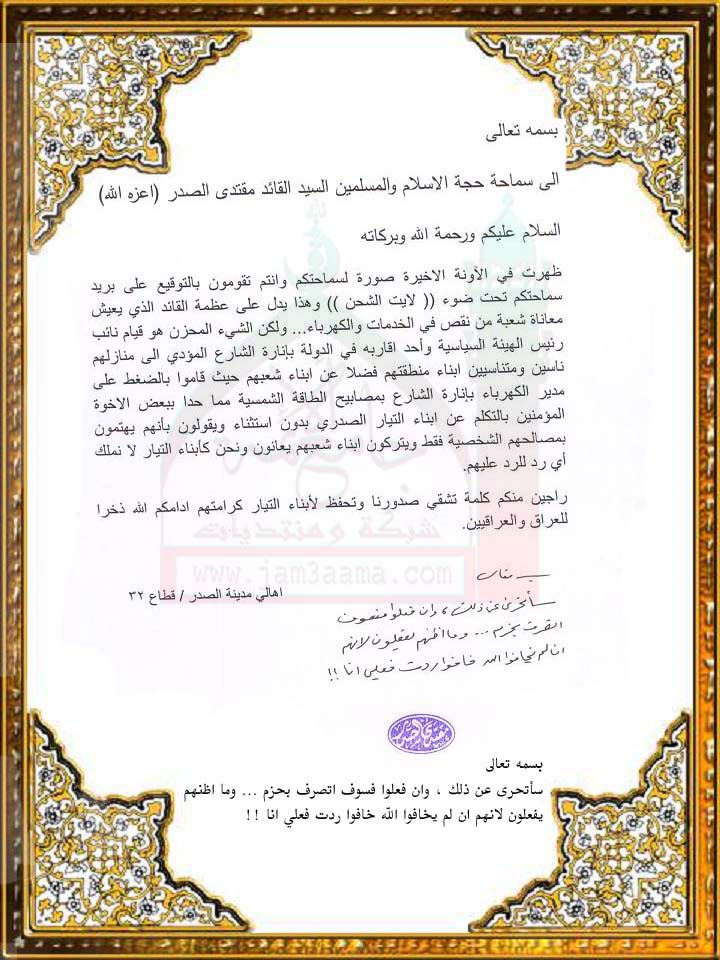 بسمه تعالى
الى سماحة حجة الاسلام والمسلمين السيد القائد مقتدى الصدر (اعزه الله)
السلام عليكم ورحمة الله وبركاته
ظهرت في الآونة الاخيرة صورة لسماحتكم وانتم تقومون بالتوقيع على بريد
سماحتكم تحت ضوء (( لايت الشحن )) وهذا يدل على عظمة القائد الذي يعيش
معاناة شعبة من نقص في الخدمات والكهرباء... ولكن الشيء المحزن هو قيام نائب
رئيس الهيئة السياسية وأحد اقاربه في الدولة بإنارة الشارع المؤدي الى منازلهم
ناسين ومتناسيين ابناء منطقتهم فضلا عن ابناء شعبهم حيث قاموا بالضغط على
مدير الكهرباء بإنارة الشارع بمصابيح الطاقة الشمسية مما حدا ببعض الاخوة
المؤمنين بالتكلم عن ابناء التيار الصدري بدون استثناء ويقولون بأنهم يهتمون
بمصالحهم الشخصية فقط ويتركون ابناء شعبهم يعانون ونحن كأبناء التيار لا نملك
أي رد للرد عليهم.
راجين منكم كلمة تشفي صدورنا وتحفظ لأبناء التيار كرامتهم ادامكم الله ذخرا
للعراق والعراقيين.
شبكة ومنتديات
www.jam3aama.com
اهالي مدينة الصدر / قطاع ٣٢
بسمه تعالى
سأتحرى عن ذلك ، وان فعلوا فسوف
اتصرف بحزم ... وما اظنهم يفعلون لانهم
ان لم يخافوا الله خافوا ردت فعلي انا !!
بسمه تعالى
سأتحرى عن ذلك ، وان فعلوا فسوف اتصرف بحزم ... وما اظنهم
يفعلون لانهم ان لم يخافوا الله خافوا ردت فعلي انا !!